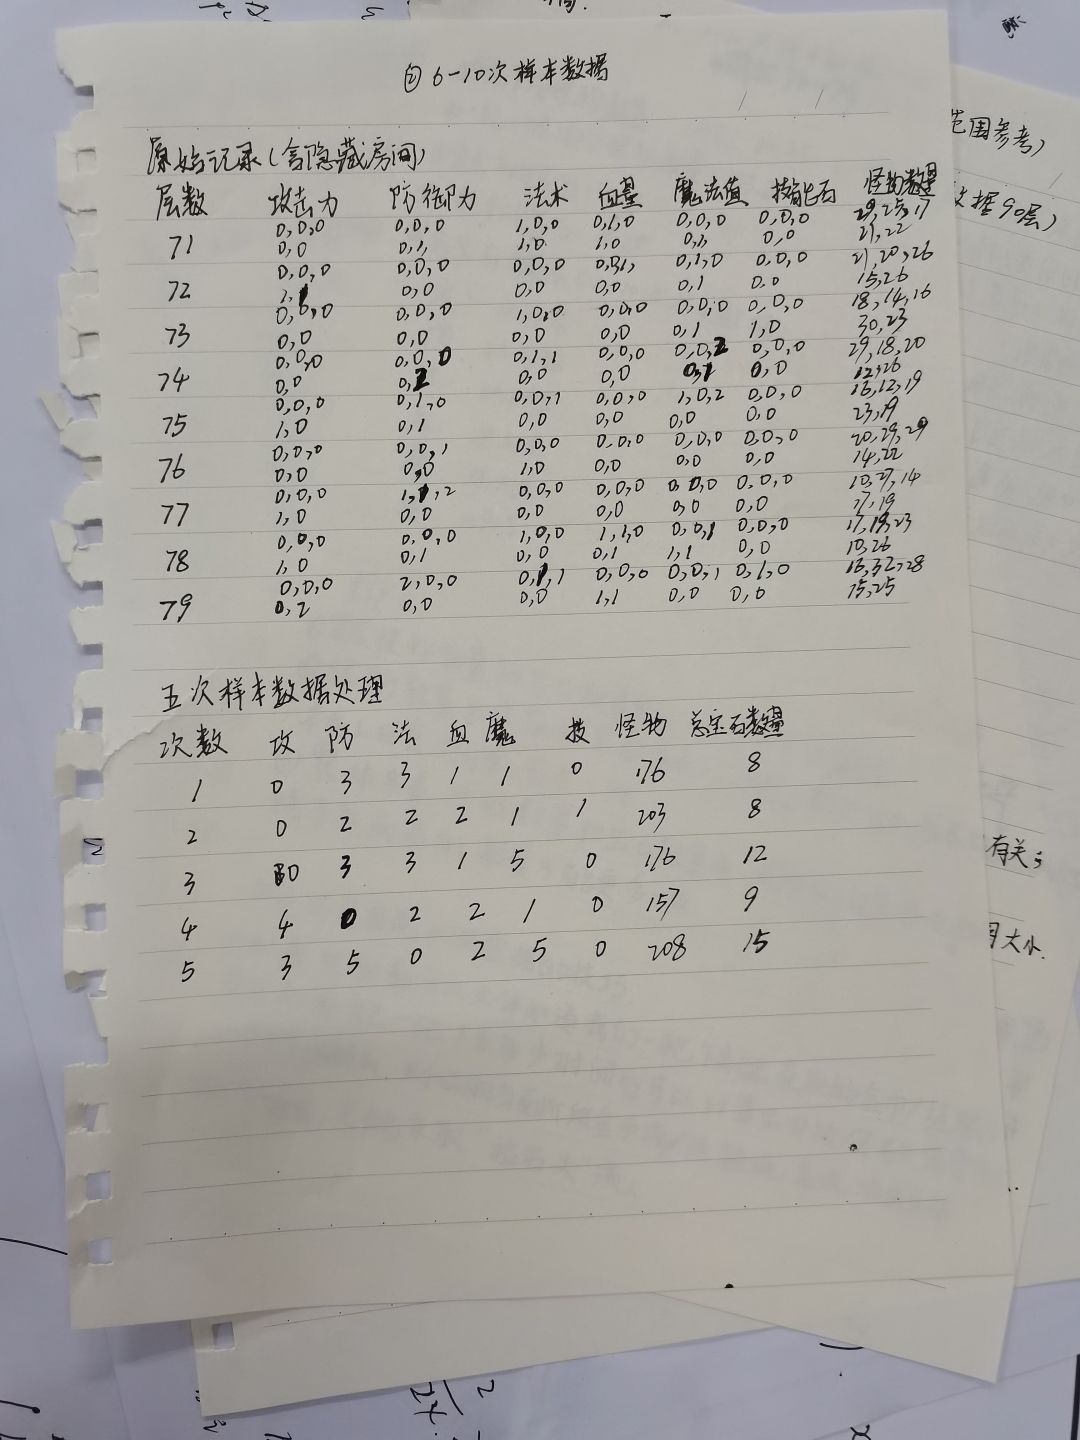 ② 6-10次样本数据
原始记录(含隐藏房间)
层数 攻击力 防御力 法术 血量 魔法值 技能石 怪物数量
0,0,0 0,0,0 1,0,0 0,1,0 0,0,0 0,0,0 29,25,17
71 0,0 0,1 1,0 1,0 0,1 0,0 21,22
0,0,0 0,0,0 0,0,0 0,0,1 0,1,0 0,0,0 21,20,26
72 1,1 0,0 0,0 0,0 0,1 0,0 15,26
0,0,0 0,0,0 1,0,0 0,0,0 0,0,0 0,0,0 18,14,16
73 0,0 0,0 0,0 0,0 0,1 1,0 30,23
0,0,0 0,0,0 0,1,1 0,0,0 0,0,2 0,0,0 29,18,20
74 0,0 0,2 0,0 0,0 0,1 0,0 12,26
0,0,0 0,1,0 0,0,1 0,0,0 1,0,2 0,0,0 16,12,19
75 1,0 0,1 0,0 0,0 0,0 0,0 23,19
0,0,0 0,0,1 0,0,0 0,0,0 0,0,0 0,0,0 20,29,29
76 0,0 0,0 1,0 0,0 0,0 0,0 14,22
0,0,0 1,1,2 0,0,0 0,0,0 0,0,0 0,0,0 10,27,14
77 1,0 0,0 0,0 0,0 0,0 0,0 17,19
0,0,0 0,0,0 1,0,0 1,1,0 0,0,1 0,0,0 17,18,23
78 1,0 0,1 0,0 0,1 1,1 0,0 10,26
0,0,0 2,0,0 0,1,1 0,0,0 0,0,1 0,1,0 16,32,28
79 0,2 0,0 0,0 1,1 0,0 0,0 15,25
五次样本数据处理
次数 攻 防 法 血 魔 技 怪物 总宝石数量
1 0 3 3 1 1 0 176 8
2 0 2 2 2 1 1 203 8
3 0 3 3 1 5 0 176 12
4 4 0 2 2 1 0 157 9
5 3 5 0 2 5 0 208 15
范围参考)
数据90层)
有关;
大小.